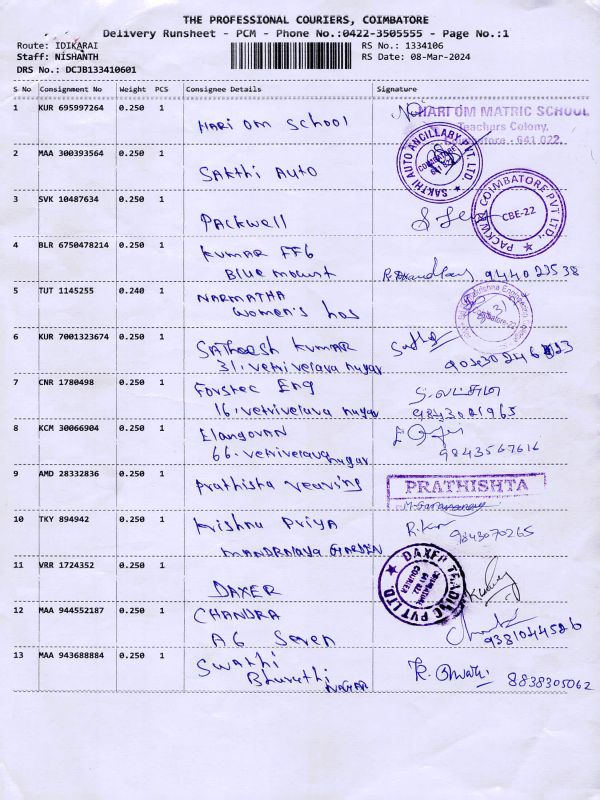 THE PROFESSIONAL COURIERS, COIMBATORE
Delivery Runsheet - PCM - Phone No.:0422-3505555 - Page No.:1
Route: IDIKARAI
RS No.: 1334106
Staff: NISHANTH
RS Date: 08-Mar-2024
DRS No.: DCJB133410601
S No Consignment No Weight PCS Consignee Details Signature
1 KUR 695997264 0.250 1
HARI OM School
HARI OM MATRIC SCHOOL
Teachers Colony,
Coimbatore - 641 022.
2 MAA 300393564 0.250 1
Sakthi Auto
SAKTHI AUTO ANCILLARY PVT. LTD.
COIMBATORE
641 022
3 SVK 10487634 0.250 1
Packwell
COIMBATORE PVT LTD.,
CBE-22
4 BLR 6750478214 0.250 1
Kumar FF6
Blue mount
5 TUT 1145255 0.240 1
NARMATHA
Women's hos
6 KUR 7001323674 0.250 1
SATHEESH KUMAR
31. vetrivelava nagar
7 CNR 1780498 0.250 1
Forstec Eng
16. vetrivelava nagar
S. லட்சுமி
8 KCM 30066904 0.250 1
Elangovan
66. vetrivelava nagar
9843567616
9 AMD 28332836 0.250 1
Prathista veaving
PRATHISHTA
10 TKY 894942 0.250 1
Krishna Priya
MANDRALAYA GARDEN
9843070265
11 VRR 1724352 0.250 1
DAXER
DAXER TRADING PVT LTD.
12 MAA 944552187 0.250 1
CHANDRA
A6 Seven
9381044526
13 MAA 943688884 0.250 1
Swathi
Bharathi
NAGAR
8838305062